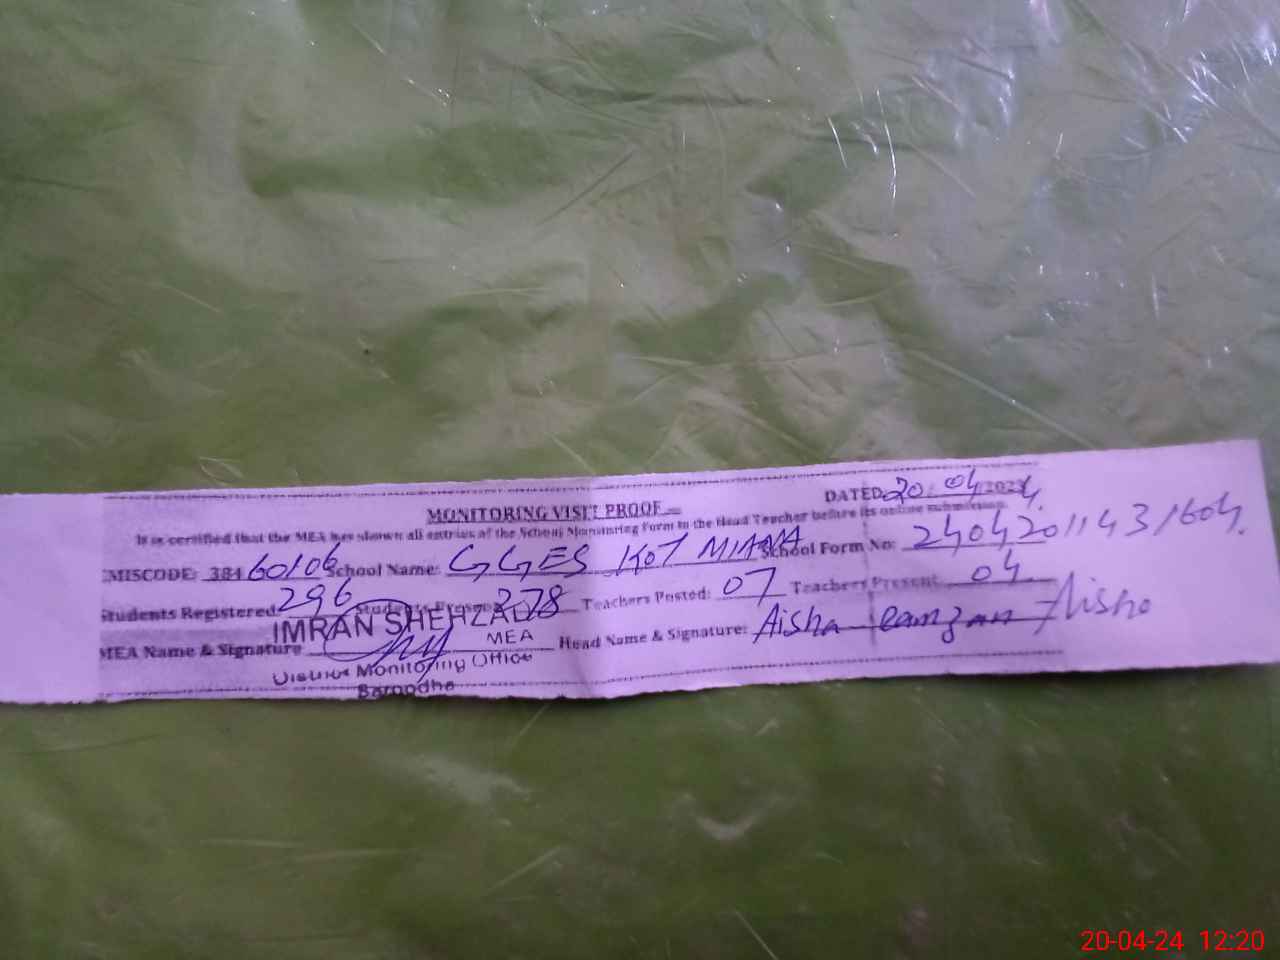 DATED 20.04/2024.
MONITORING VISIT PROOF
It is certified that the MEA has shown all entries of the School Monitoring Form to the Head Teacher before its online submission.
EMISCODE: 384 60106 School Name: GGES KOT MIANA School Form No: 24042011431604.
Students Registered: 296 Students Present 278 Teachers Posted: 07 Teachers Present 04.
MEA Name & Signature Head Name & Signature: Aisha Ramzan Aisha
IMRAN SHEHZAD
MEA
District Monitoring Office
Sargodha
20-04-24 12:20